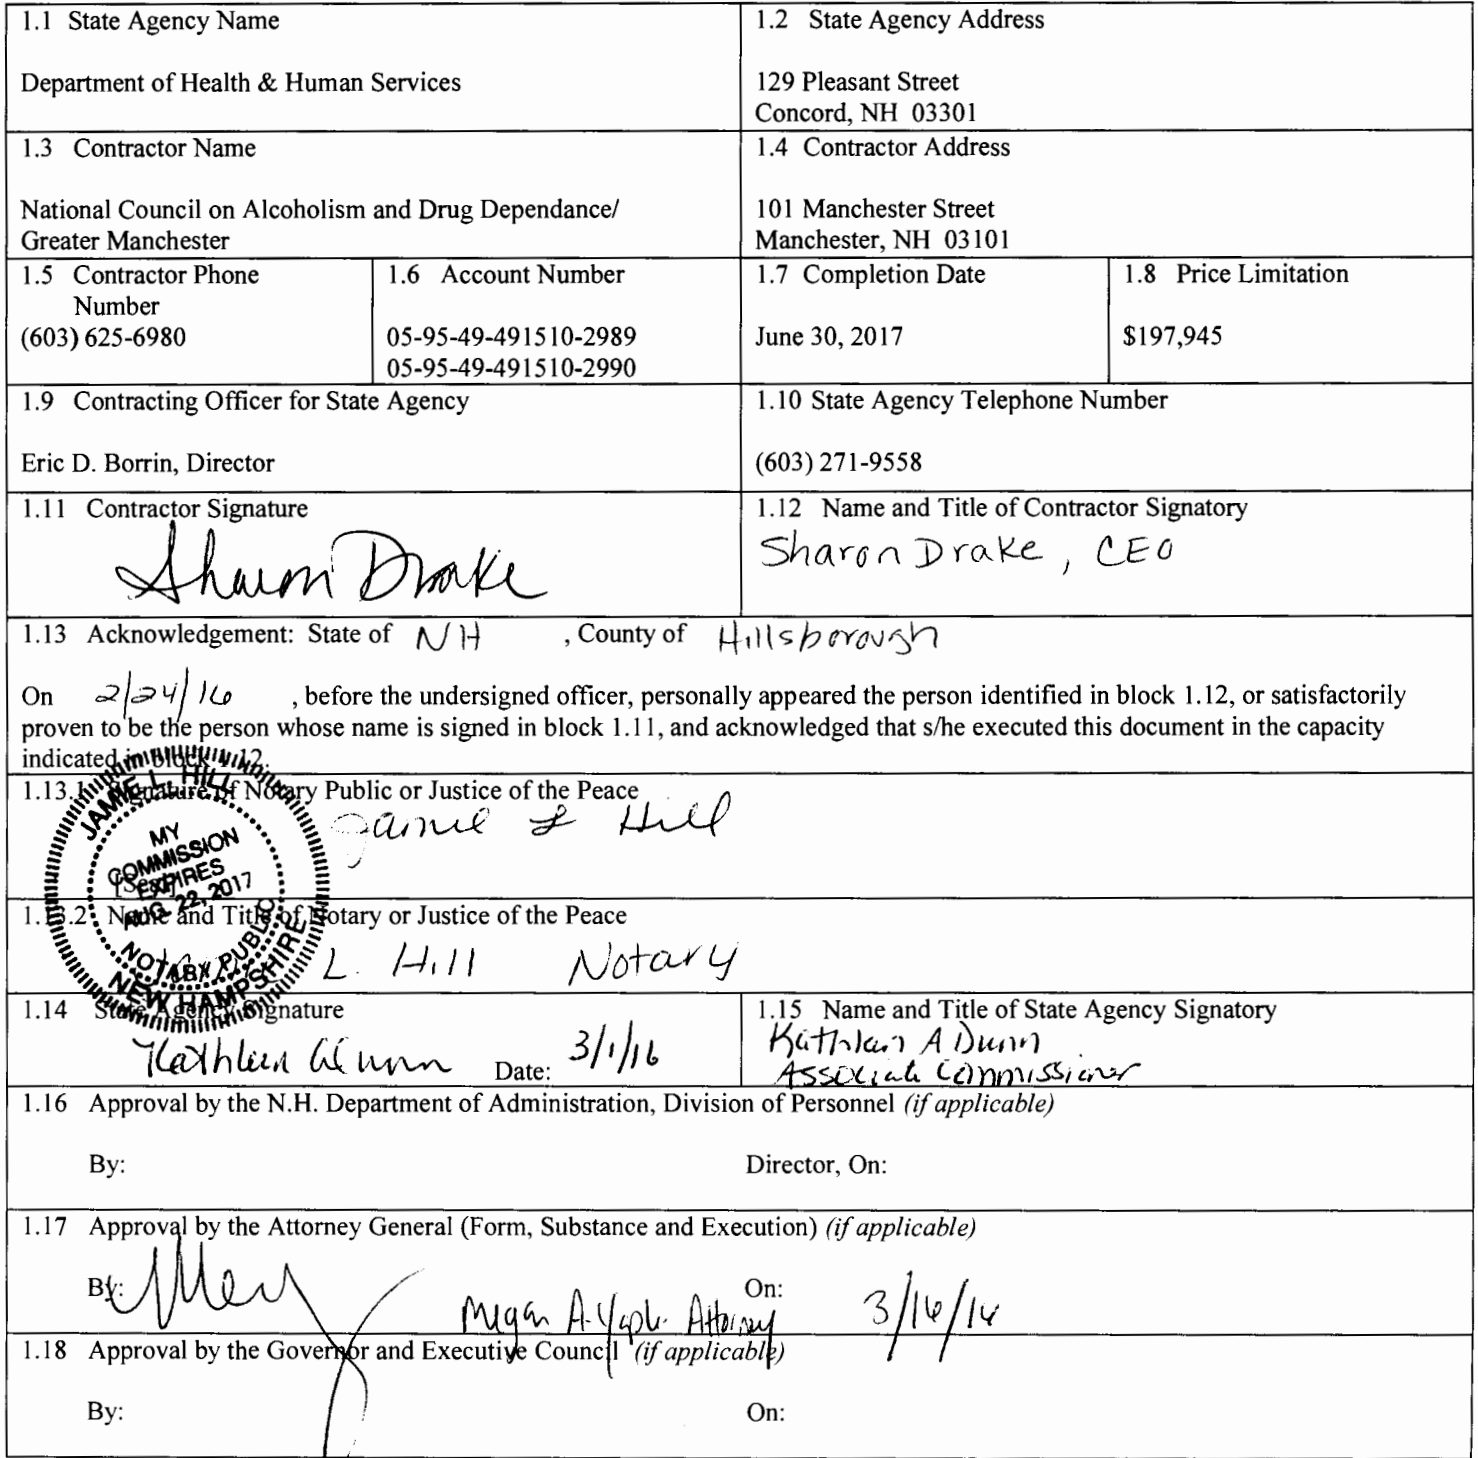 1.1 State Agency Name
Department of Health & Human Services
1.2 State Agency Address
129 Pleasant Street
Concord, NH 03301
1.3 Contractor Name
National Council on Alcoholism and Drug Dependance/
Greater Manchester
1.4 Contractor Address
101 Manchester Street
Manchester, NH 03101
1.5 Contractor Phone
Number
(603) 625-6980
1.6 Account Number
05-95-49-491510-2989
05-95-49-491510-2990
1.7 Completion Date
June 30, 2017
1.8 Price Limitation
$197,945
1.9 Contracting Officer for State Agency
Eric D. Borrin, Director
1.10 State Agency Telephone Number
(603) 271-9558
1.11 Contractor Signature
Sharon Drake
1.12 Name and Title of Contractor Signatory
Sharon Drake, CEO
1.13 Acknowledgement: State of NH , County of Hillsborough
On 2/24/16 , before the undersigned officer, personally appeared the person identified in block 1.12, or satisfactorily
proven to be the person whose name is signed in block 1.11, and acknowledged that s/he executed this document in the capacity
indicated in block 1.12.
1.13.1 Signature of Notary Public or Justice of the Peace
Jamie L Hill
[Seal]
JAMIE L. HILL
MY
COMMISSION
EXPIRES
AUG. 22, 2017
NOTARY PUBLIC
NEW HAMPSHIRE
1.13.2 Name and Title of Notary or Justice of the Peace
L. Hill Notary
1.14 State Agency Signature
Kathleen A Dunn Date: 3/1/16
1.15 Name and Title of State Agency Signatory
Kathleen A Dunn
Associate Commissioner
1.16 Approval by the N.H. Department of Administration, Division of Personnel (if applicable)
By: Director, On:
1.17 Approval by the Attorney General (Form, Substance and Execution) (if applicable)
By: Megan A. Attorney On: 3/16/16
1.18 Approval by the Governor and Executive Council (if applicable)
By: On: